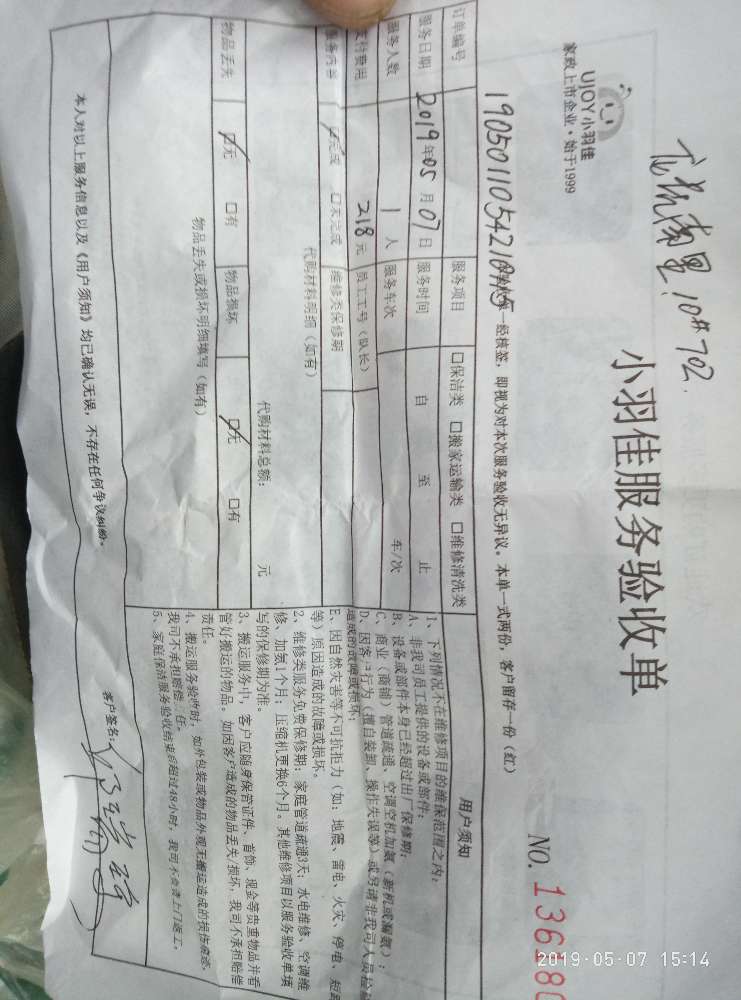 10#702.
UJOY 小羽佳
家政上市企业·始于1999
小羽佳服务验收单
NO. 136180
一经核签，即视为对本次服务验收无异议。本单一式两份，客户留存一份（红）
订单编号
服务项目 口保洁类 口搬家运输类 口维修清洗类
服务日期 2019年05月07日 服务时间 自 至 止
服务人数 1人 服务车次 车/次
支付费用 218元 员工工号（队长）
服务内容 口完成 口未完成 维修类保修期
代购材料明细（如有）
代购材料总额： 元
物品丢失 口无 口有 物品损坏 口无 口有
物品丢失或损坏明细填写（如有）
用户须知
1、下列情况不在维修项目的维保范围之内：
A、非我司员工提供的设备或部件；
B、设备或部件本身已经超过出厂保修期；
C、商业（商铺）管道疏通、空调空机加氨（新机或漏氨）；
D、因客户行为（擅自装卸、操作失误等）或另请非我司人员检
造成的故障或损坏；
E、因自然灾害等不可抗拒力（如：地震、雷电、火灾、停电、短
等）原因造成的故障或损坏。
2、维修类服务免费保修期：家庭管道疏通3天；水电维修、空调维
修、加氨1个月；压缩机更换6个月。其他维修项目以服务验收单填
写的保修期为准。
3、搬运服务中，客户应随身保管证件、首饰、现金等贵重物品并看
管好搬运的物品。如因客户造成的物品丢失/损坏，我司不承担赔偿
责任。
4、搬运服务验收时，如外包装或物品外观无搬运造成的损伤痕迹，
我司不承担赔偿责任。
5、家庭保洁服务验收结束后超过48小时，我司不负责上门返工。
本人对以上服务信息以及《用户须知》均已确认无误，不存在任何争议纠纷。
客户签名：
2019-05-07 15:14